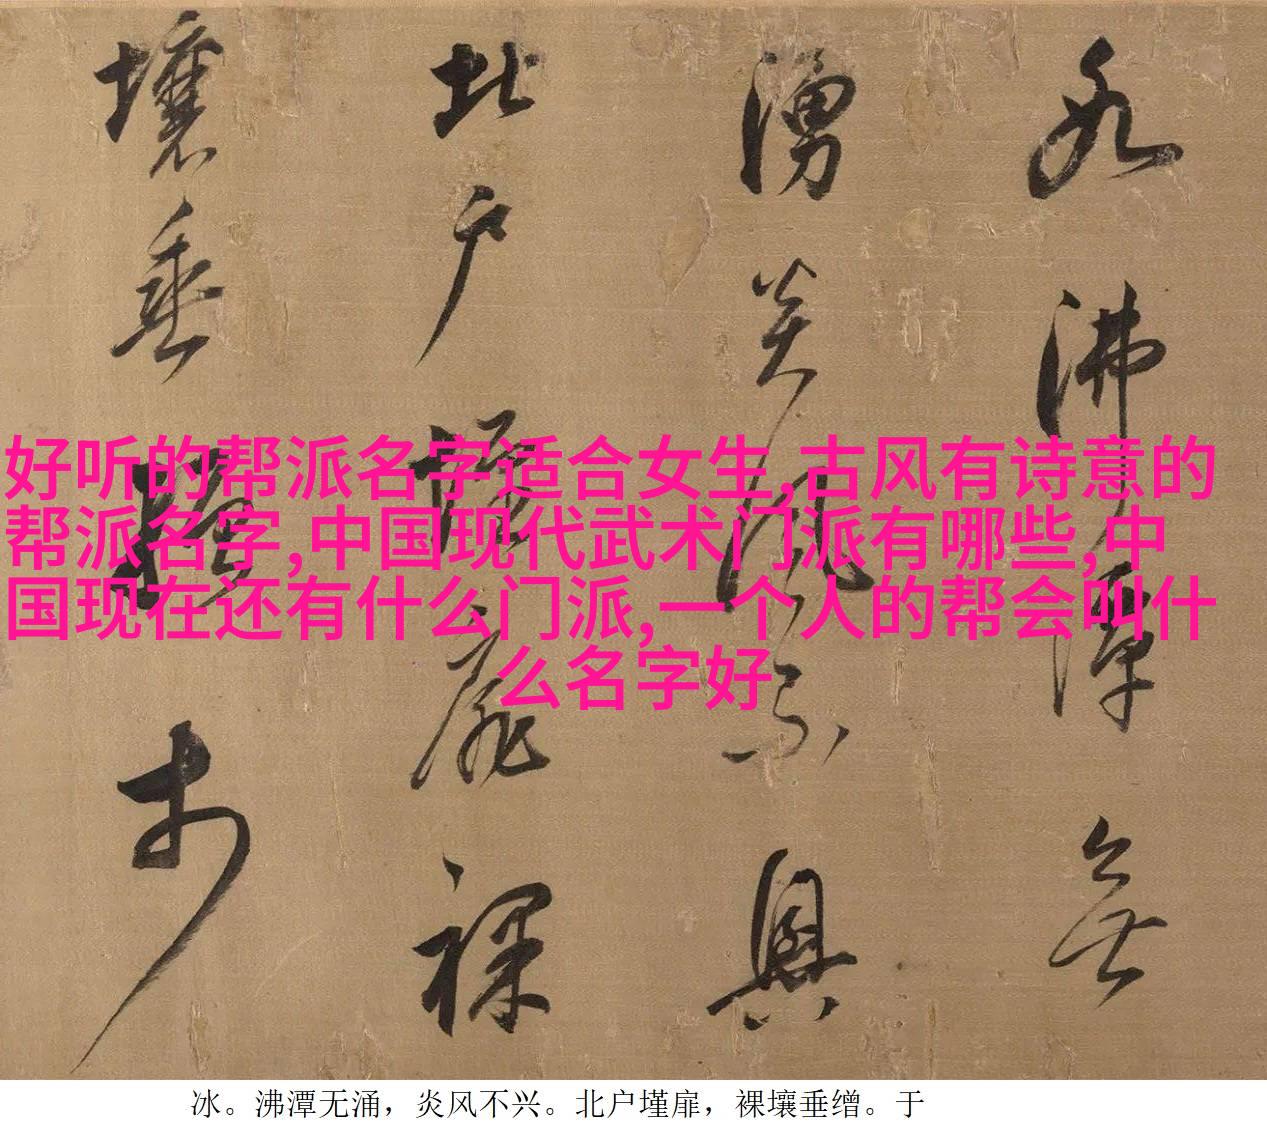 冰沸潭無
湧炎風不興
北户墐扉裸
壤垂繒于
好听的帮派名字适合女生,古风有诗意的
帮派名字,中国现代武术门派有哪些,中
国现在还有什么门派,一个人的帮会叫什
么名字好
冰。沸潭无涌，炎风不兴。北户墐扉，裸壤垂缯。于